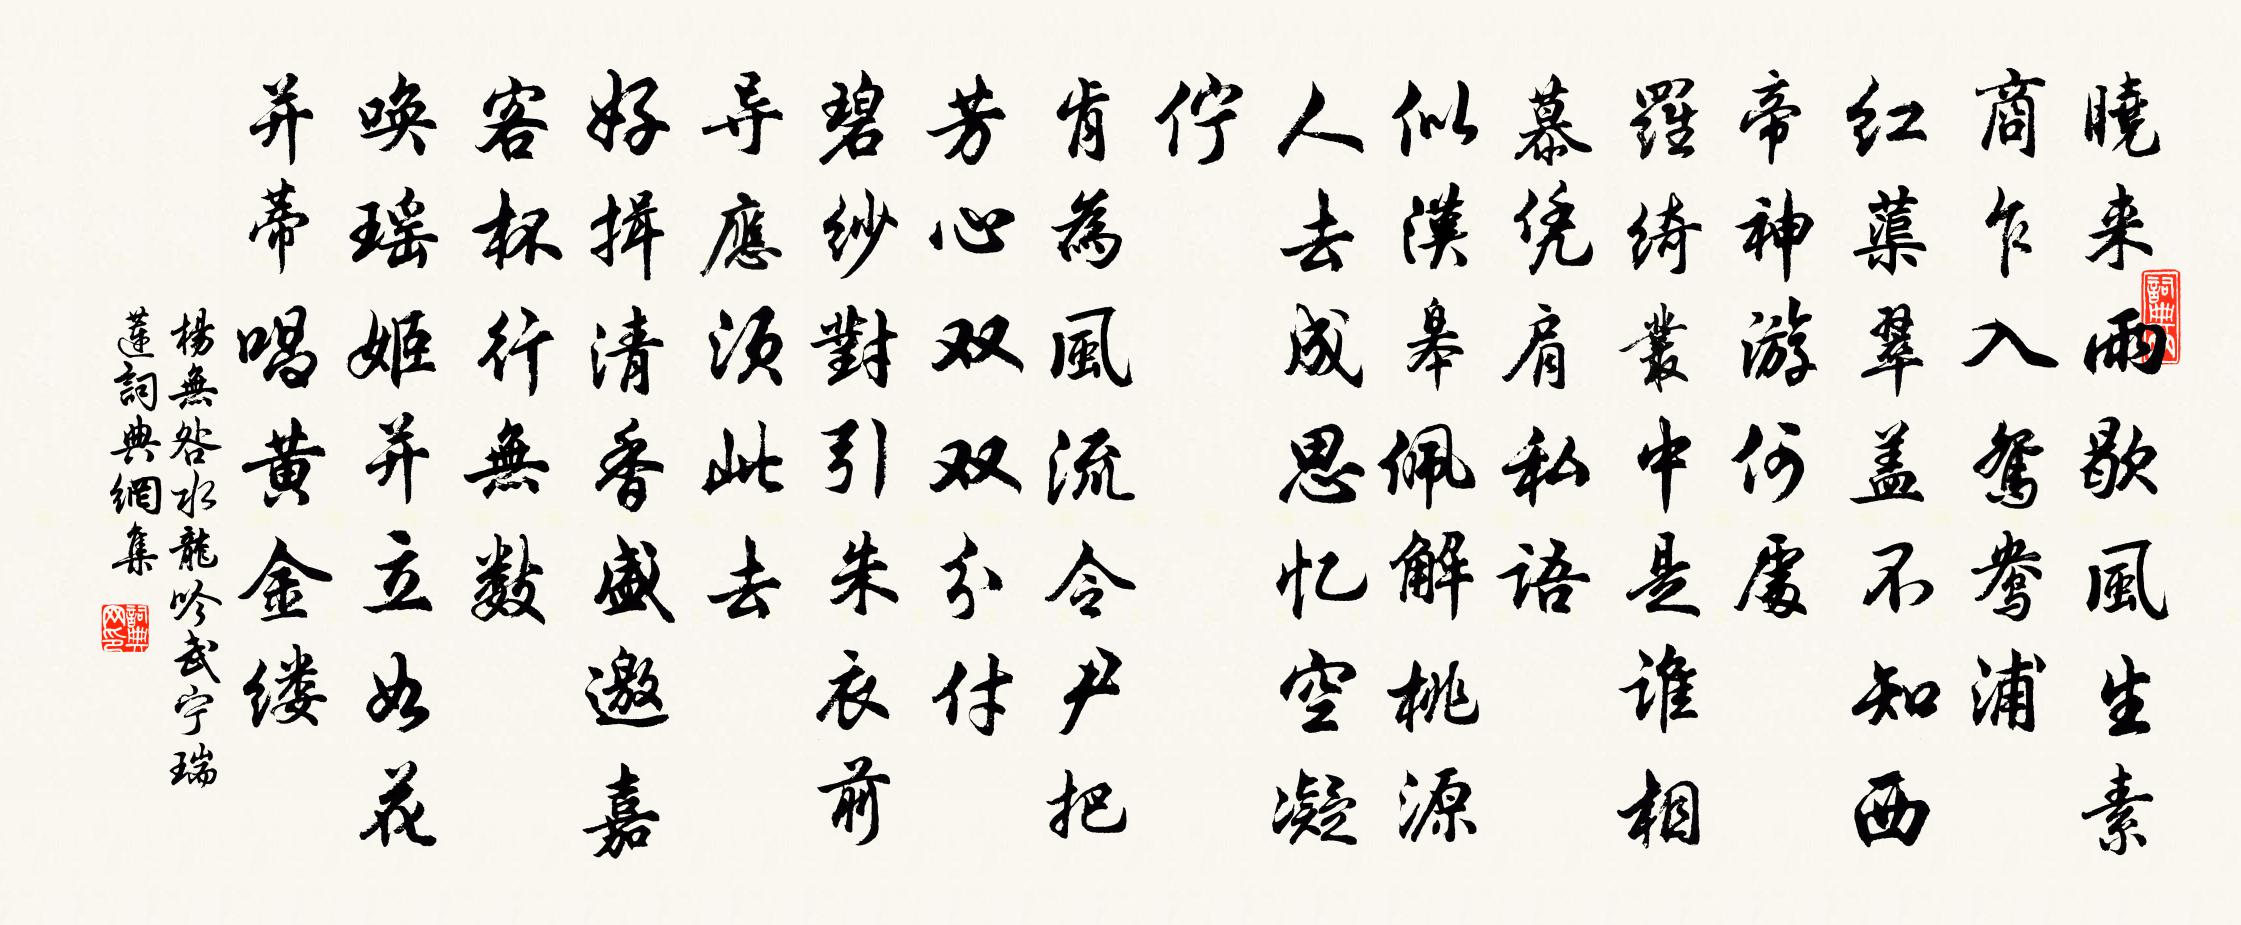 曉来雨歇風生素
商乍入鴛鴦浦
红蕖翠盖不知西
帝神游何處
羅綺叢中是誰相
慕凭肩私語
似漢皋佩解桃源
人去成思忆空凝
佇
肯為風流令尹把
芳心双双分付
碧紗對引朱衣前
导應须此去
好揖清香盛邀嘉
客杯行無數
唤瑶姬并立如花
并蒂唱黄金缕
楊無咎水龍吟武宁瑞
蓮詞典網集